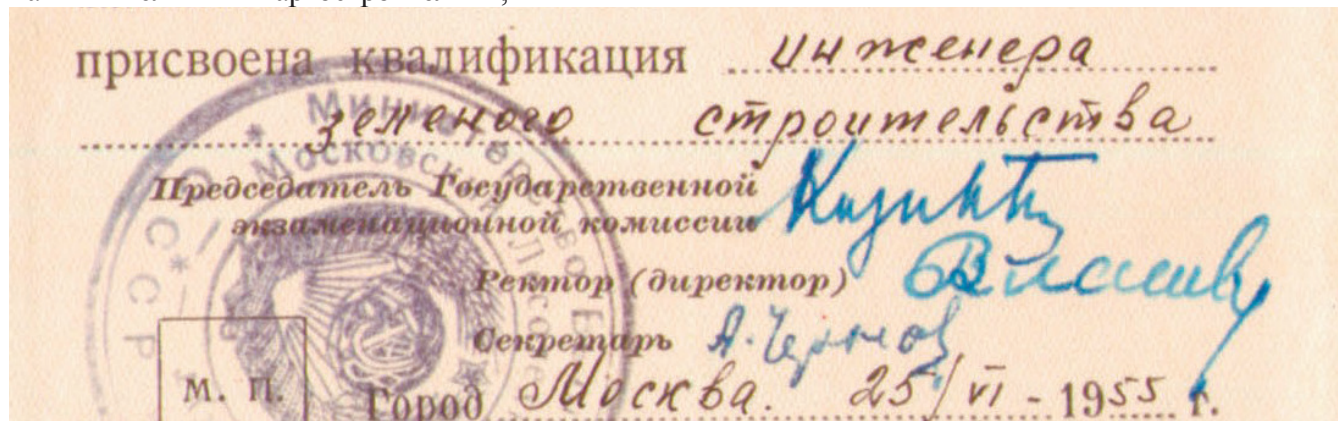 присвоена квалификация инженера
зеленого строительства
Председатель Государственной
экзаменационной комиссии
Ректор (директор)
Секретарь А.
М. П.
Город Москва. 25/VI - 1955 г.
Министерство
Московский
СССР